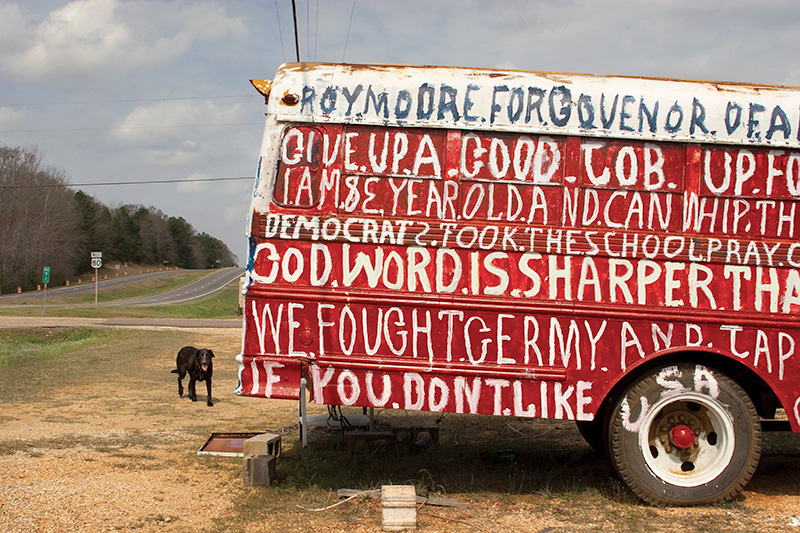 ROYMOORE.FORGOVENOR.DEA
GIVE.UP.A.GOOD.JOB.UP.FO
IAM.82.YEAROLD.AND.CAN WHIP.TH
DEMOCRATS.TOOK.THESCHOOL.PRAY
GOD.WORD.IS.SHARPER.THA
WE.FOUGHT.GERMY.AND.JAP
IF.YOU.DONT.LIKE
USA
WEST
80